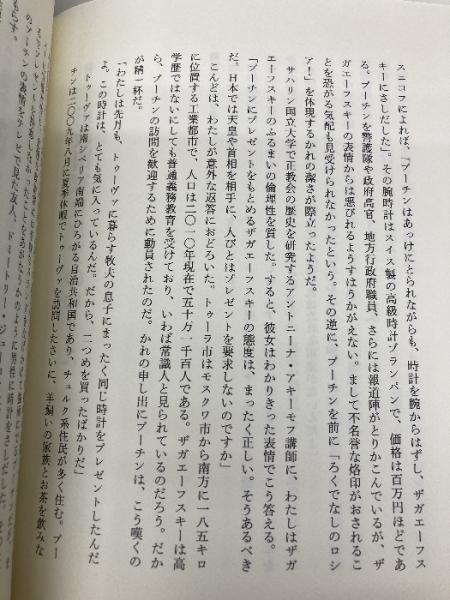 スニコフによれば、「プーチンはあっけにとられながらも、時計を腕からはずし、ザガエーフス
キーにさしだした」。その腕時計はスイス製の高級時計ブランパンで、価格は百万円ほどであ
る。プーチンを警護隊や政府高官、地方行政府職員、さらには報道陣がとりかこんでいるが、ザ
ガエーフスキーの表情からは悪びれるようすはうかがえない。まして不名誉な烙印がおされるこ
とを恐がる気配も見受けられなかったという。その逆に、プーチンを前に「ろくでなしのロシ
ア!」を体現するかれの潔さが際立ったようだ。
サハリン国立大学で正教会の歴史を研究するアントニーナ・アキーモフ講師に、わたしはザガ
エーフスキーのふるまいの倫理性を質した。すると、彼女はわかりきった表情でこう答える。
「プーチンにプレゼントをもとめるザガエーフスキーの態度は、まったく正しい。そうあるべき
だ。日本では天皇や首相を相手に、人びとはプレゼントを要求しないのですか」
こんどは、わたしが意外な返答におどろいた。トゥーラ市はモスクワ市から南方に一八五キロ
に位置する工業都市で、人口は二〇一〇年現在で五十万一千百人である。ザガエーフスキーは高
学歴ではないにしても普通義務教育を受けており、いわば常識人と見られているのだろう。だか
ら、プーチンの訪問を歓迎するために動員されたのだ。かれの申し出にプーチンは、こう嘆くの
が精一杯だ。
「わたしは先月も、トゥーヴァに暮らす牧夫の息子にまったく同じ時計をプレゼントしたんだ
よ。この時計は、とても気に入っているんだ。だから、二つめを買ったばかりだ」
トゥーヴァは南シベリア南端にひろがる自治共和国であり、チュルク系住民が多く住む。プー
チンは二〇〇九年八月に夏季休暇でトゥーヴァを訪問したさいに、羊飼いの家族とお茶を飲みな
男性に時計をさしだした。
のプーチンの表情をテレビで見た友人
もらす。